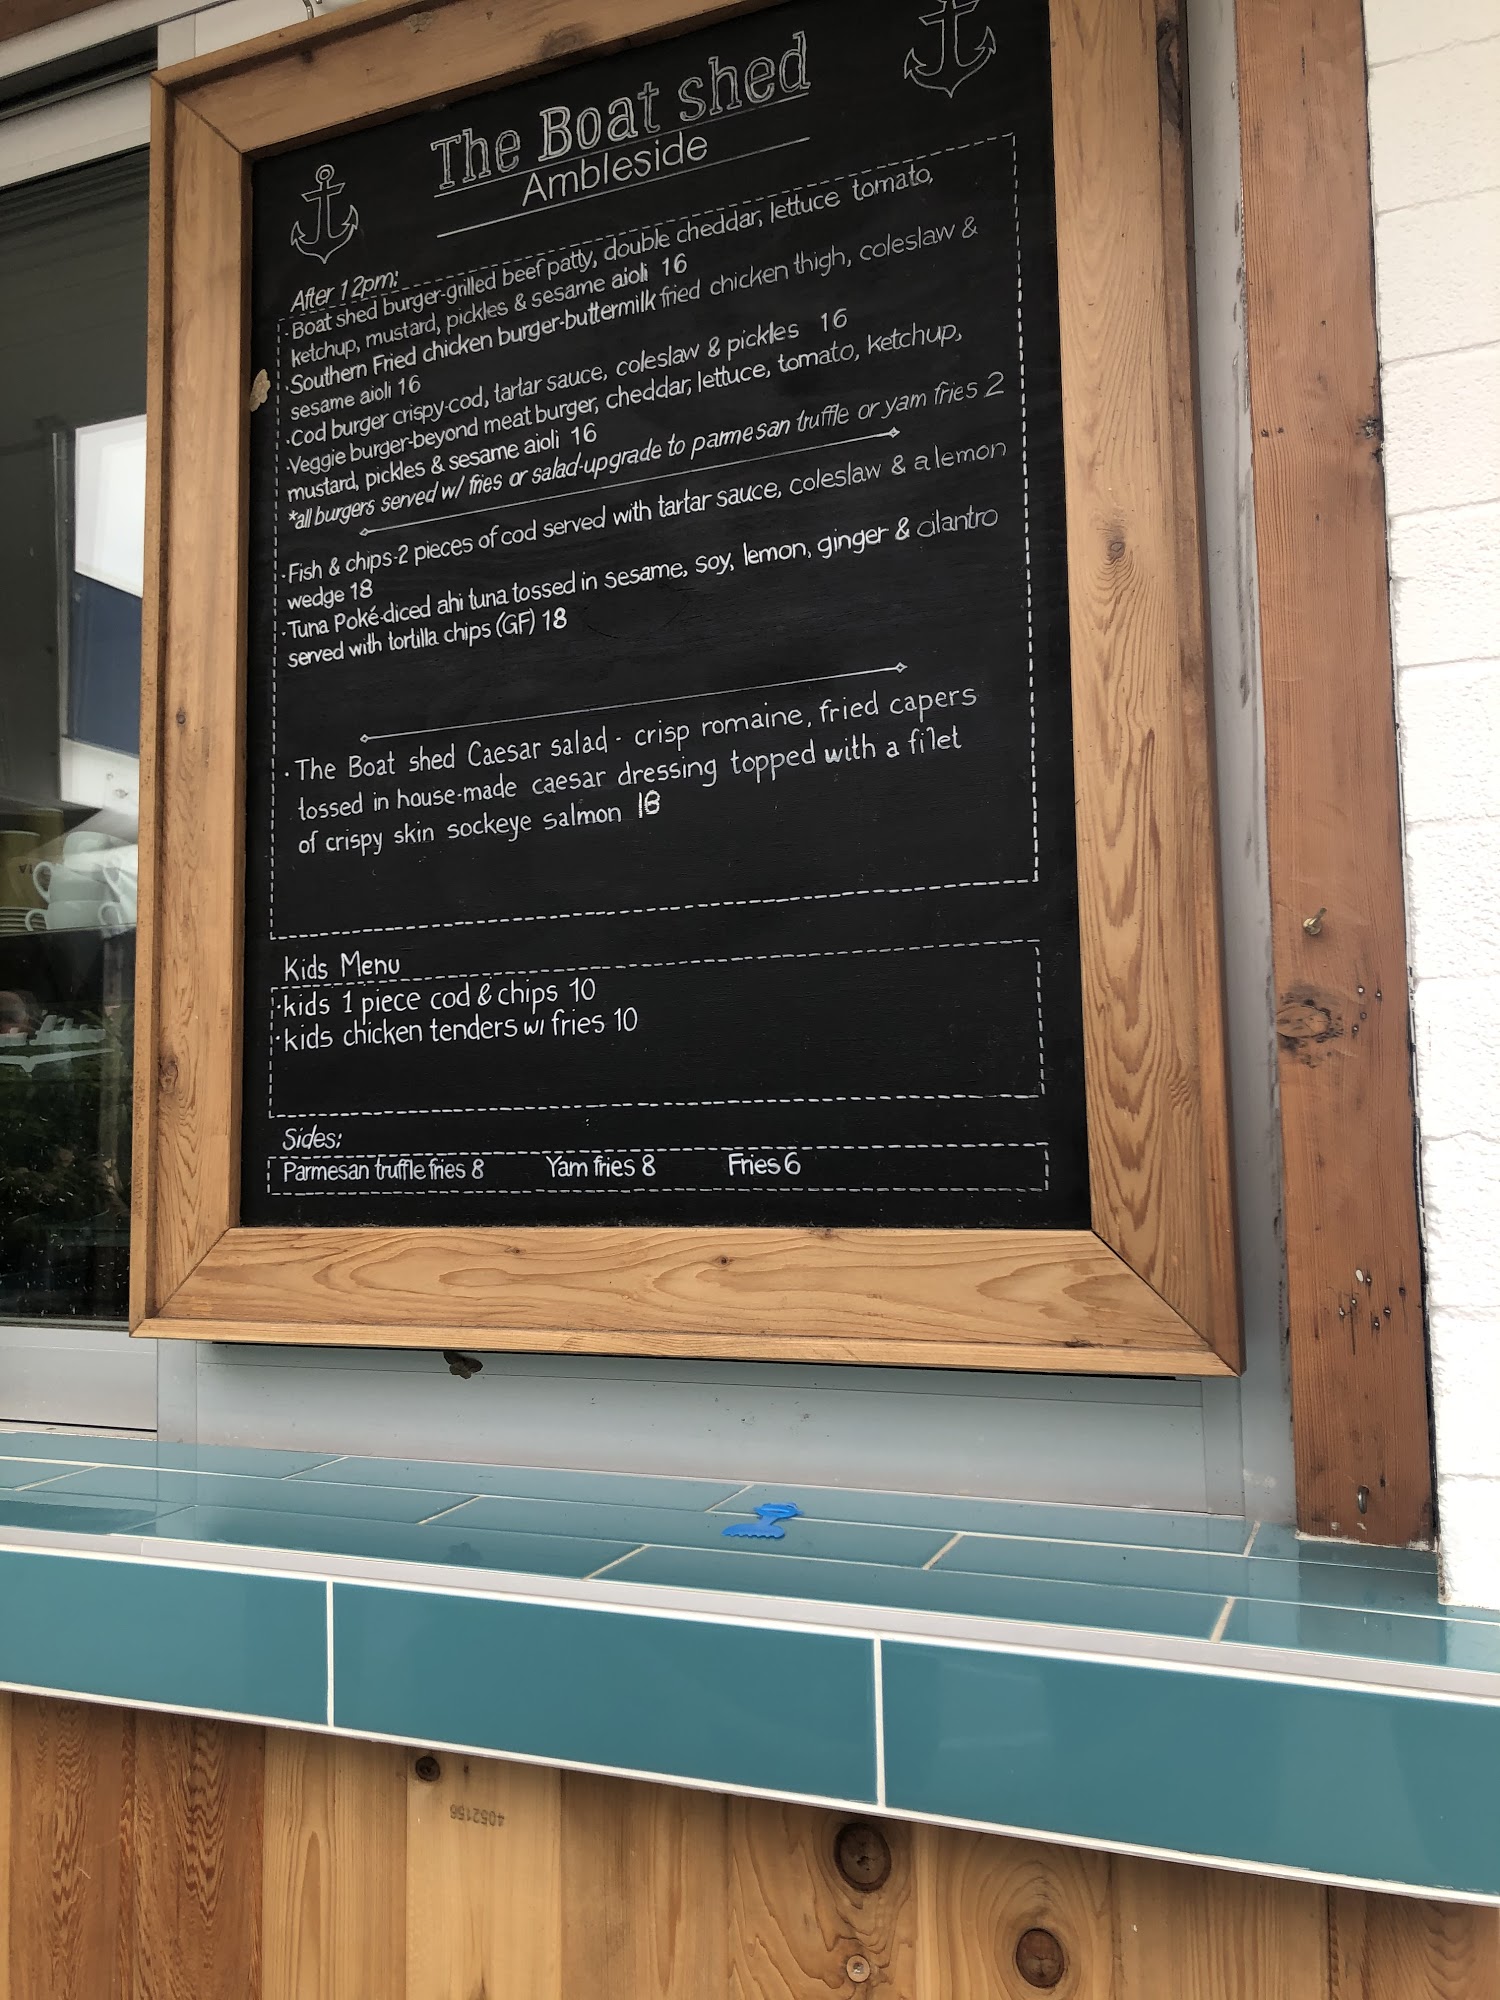 The Boat shed
Ambleside
After 12pm:
·Boat shed burger-grilled beef patty, double cheddar, lettuce tomato,
ketchup, mustard, pickles & sesame aioli 16
·Southern Fried chicken burger-buttermilk fried chicken thigh, coleslaw &
sesame aioli 16
·Cod burger crispy-cod, tartar sauce, coleslaw & pickles 16
·Veggie burger-beyond meat burger, cheddar, lettuce, tomato, ketchup,
mustard, pickles & sesame aioli 16
*all burgers served w/ fries or salad-upgrade to parmesan truffle or yam fries 2
·Fish & chips-2 pieces of cod served with tartar sauce, coleslaw & a lemon
wedge 18
·Tuna Poké-diced ahi tuna tossed in sesame, soy, lemon, ginger & cilantro
served with tortilla chips (GF) 18
·The Boat shed Caesar salad - crisp romaine, fried capers
tossed in house-made caesar dressing topped with a filet
of crispy skin sockeye salmon 18
Kids Menu
·kids 1 piece cod & chips 10
·kids chicken tenders w/ fries 10
Sides:
Parmesan truffle fries 8 Yam fries 8 Fries 6
4052156